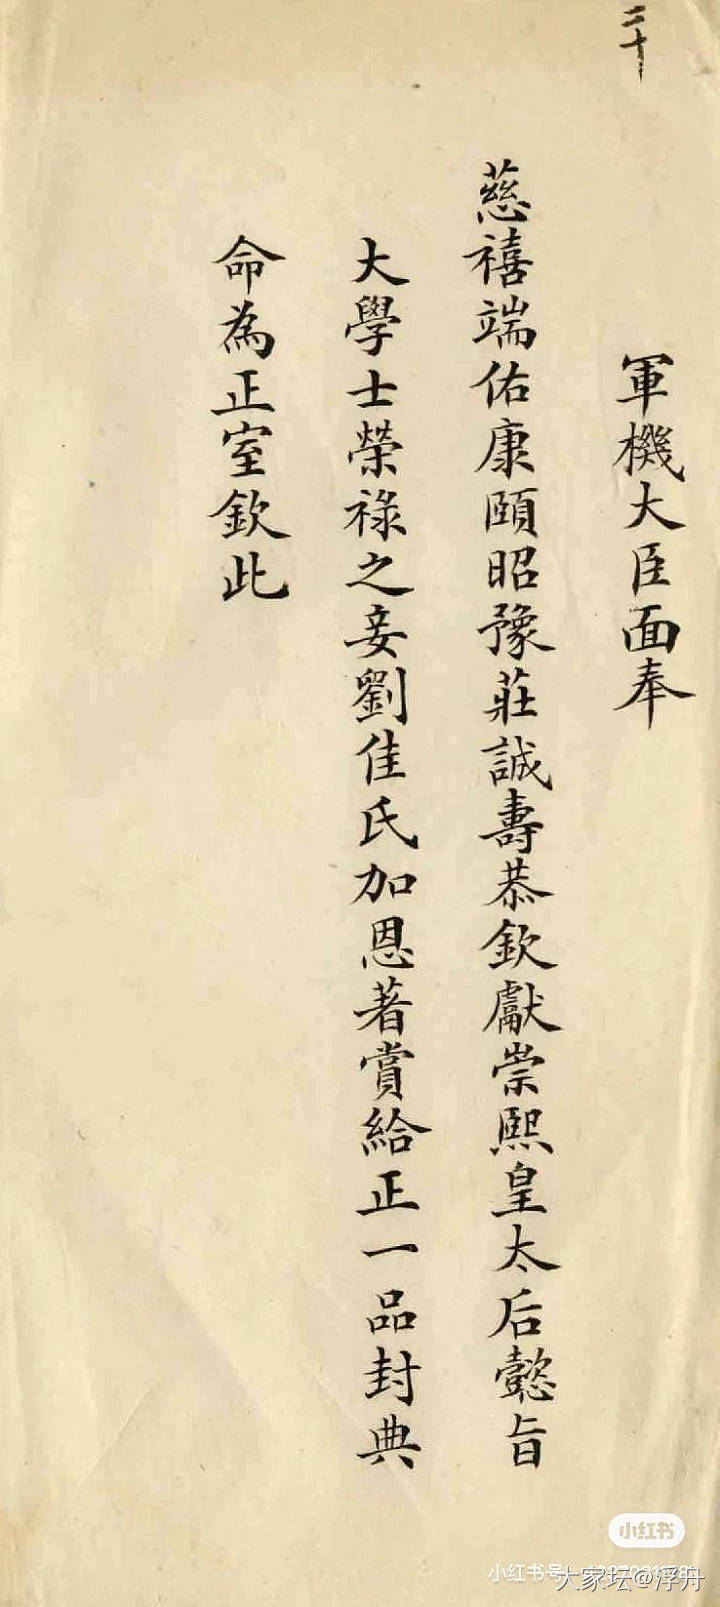 二十
軍機大臣面奉
慈禧端佑康頤昭豫莊誠壽恭欽獻崇熙皇太后懿旨
大學士榮祿之妾劉佳氏加恩著賞給正一品封典
命為正室欽此
小红书
小红书号
大家坛@浮舟